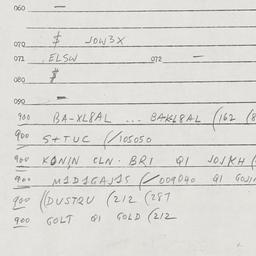 060 —
070 $ JOW3X
071 ELSW 072 —
080 $
090 —
900 BA-XL8AL ... BAKL8AL (162
900 S+TUC (/105050
900 KONIN CLN. BRI QI JOJKH (
900 MIDIGAJIS (/009040 QI GOJIN
900 (DUSTQU (212 (287
900 GOLT QI GOLD (212